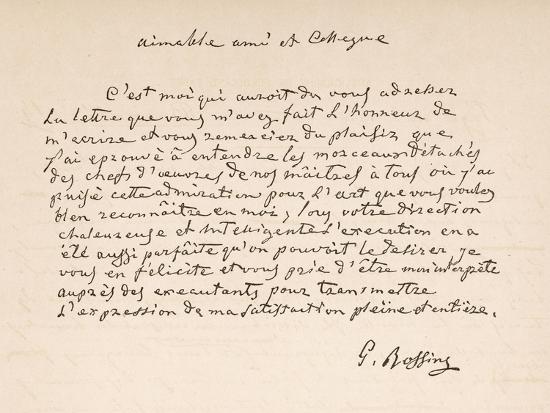 aimable ami et Collegue
C'est moi qui auroit du vous adresser
la lettre que vous m'avez fait l'honneur de
m'ecrire et vous remercier du plaisir que
j'ai eprouvé à entendre les morceaux détachés
des chefs d'oeuvres de nos maitres à tous où j'ai
puisé cette admiration pour l'art que vous voulez
bien reconnaître en moi, sous votre direction
chaleureuse et intelligente l'execution en a
été aussi parfaite qu'on pouvoit le desirer je
vous en félicite et vous prie d'être mon interprète
auprès des executants pour transmettre
l'expression de ma satisfaction pleine et entière.
G. Rossini